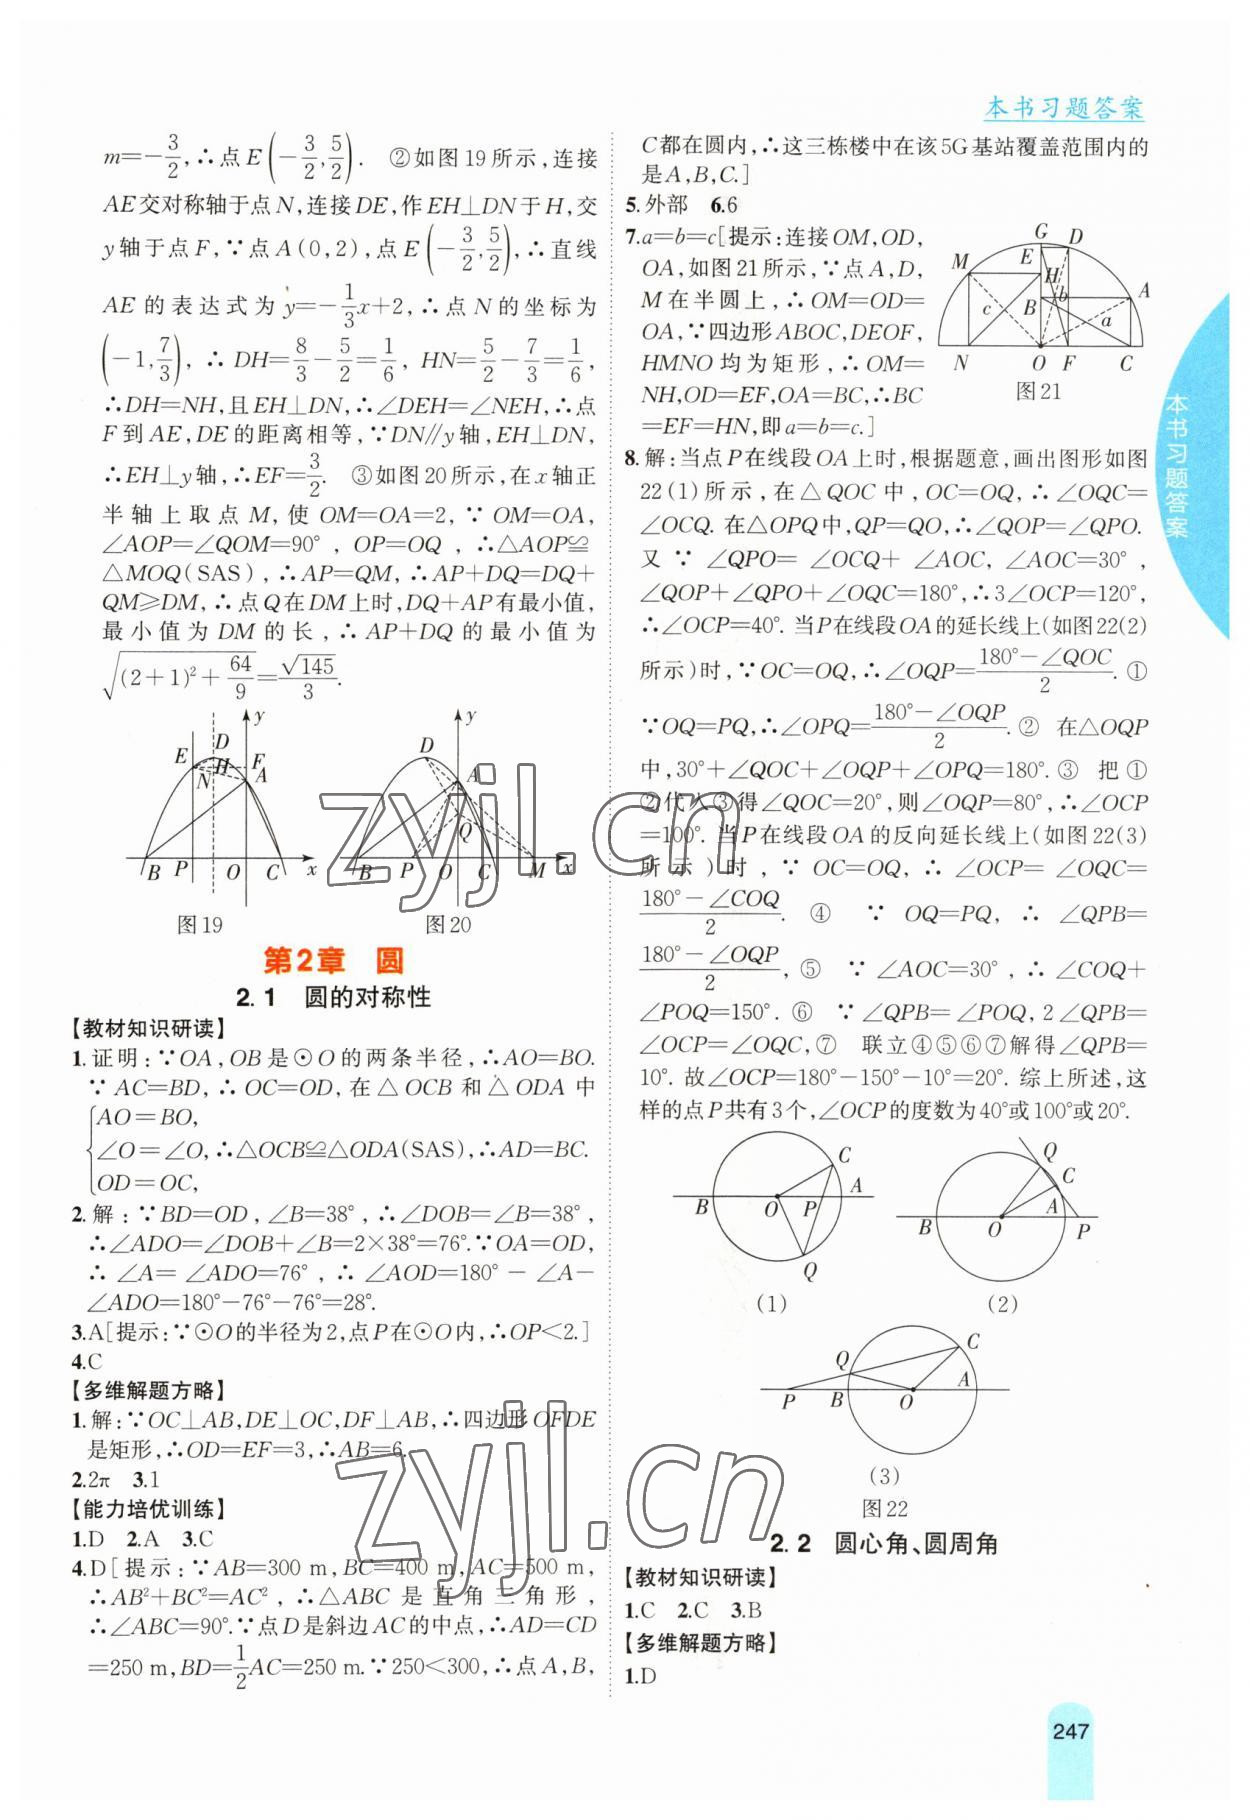 本书习题答案
m=-3/2,∴点E(-3/2,5/2). ②如图19所示,连接
AE交对称轴于点N,连接DE,作EH⊥DN于H,交
y轴于点F,∵点A(0,2),点E(-3/2,5/2),∴直线
AE的表达式为y=-1/3x+2,∴点N的坐标为
(-1,7/3),∴DH=8/3-5/2=1/6,HN=5/2-7/3=1/6,
∴DH=NH,且EH⊥DN,∴∠DEH=∠NEH,∴点
F到AE,DE的距离相等,∵DN∥y轴,EH⊥DN,
∴EH⊥y轴,∴EF=3/2. ③如图20所示,在x轴正
半轴上取点M,使OM=OA=2,∵OM=OA,
∠AOP=∠QOM=90°,OP=OQ,∴△AOP≌
△MOQ(SAS),∴AP=QM,∴AP+DQ=DQ+
QM≥DM,∴点Q在DM上时,DQ+AP有最小值,
最小值为DM的长,∴AP+DQ的最小值为
√((2+1)²+64/9)=√145/3.
y
D
E
H
F
N
A
B
P
O
C
x
图19
y
D
A
Q
B
P
O
C
M
x
图20
第2章 圆
2.1 圆的对称性
【教材知识研读】
1.证明:∵OA,OB是⊙O的两条半径,∴AO=BO.
∵AC=BD,∴OC=OD,在△OCB和△ODA中
{AO=BO,
∠O=∠O,∴△OCB≌△ODA(SAS),∴AD=BC.
OD=OC,
2.解:∵BD=OD,∠B=38°,∴∠DOB=∠B=38°,
∴∠ADO=∠DOB+∠B=2×38°=76°.∵OA=OD,
∴∠A=∠ADO=76°,∴∠AOD=180°-∠A-
∠ADO=180°-76°-76°=28°.
3.A[提示:∵⊙O的半径为2,点P在⊙O内,∴OP<2.]
4.C
【多维解题方略】
1.解:∵OC⊥AB,DE⊥OC,DF⊥AB,∴四边形OFDE
是矩形,∴OD=EF=3,∴AB=6.
2.2π 3.1
【能力培优训练】
1.D 2.A 3.C
4.D[提示:∵AB=300 m,BC=400 m,AC=500 m,
∴AB²+BC²=AC²,∴△ABC是直角三角形,
∴∠ABC=90°.∵点D是斜边AC的中点,∴AD=CD
=250 m,BD=1/2AC=250 m.∵250<300,∴点A,B,
C都在圆内,∴这三栋楼中在该5G基站覆盖范围内的
是A,B,C.]
5.外部 6.6
7.a=b=c[提示:连接OM,OD,
OA,如图21所示,∵点A,D,
M在半圆上,∴OM=OD=
OA,∵四边形ABOC,DEOF,
HMNO均为矩形,∴OM=
NH,OD=EF,OA=BC,∴BC
=EF=HN,即a=b=c.]
G
D
M
E
H
b
A
c
B
a
N
O
F
C
图21
8.解:当点P在线段OA上时,根据题意,画出图形如图
22(1)所示,在△QOC中,OC=OQ,∴∠OQC=
∠OCQ.在△OPQ中,QP=QO,∴∠QOP=∠QPO.
又∵∠QPO=∠OCQ+∠AOC,∠AOC=30°,
∠QOP+∠QPO+∠OQC=180°,∴3∠OCP=120°,
∴∠OCP=40°.当P在线段OA的延长线上(如图22(2)
所示)时,∵OC=OQ,∴∠OQP=(180°-∠QOC)/2.①
∵OQ=PQ,∴∠OPQ=(180°-∠OQP)/2.② 在△OQP
中,30°+∠QOC+∠OQP+∠OPQ=180°.③ 把①
②代入③得∠QOC=20°,则∠OQP=80°,∴∠OCP
=100°.当P在线段OA的反向延长线上(如图22(3)
所示)时,∵OC=OQ,∴∠OCP=∠OQC=
(180°-∠COQ)/2.④ ∵OQ=PQ,∴∠QPB=
(180°-∠OQP)/2,⑤ ∵∠AOC=30°,∴∠COQ+
∠POQ=150°.⑥ ∵∠QPB=∠POQ,2∠QPB=
∠OCP=∠OQC,⑦ 联立④⑤⑥⑦解得∠QPB=
10°.故∠OCP=180°-150°-10°=20°.综上所述,这
样的点P共有3个,∠OCP的度数为40°或100°或20°.
C
B
O
P
A
Q
(1)
Q
C
A
B
O
P
(2)
C
Q
A
P
B
O
(3)
图22
2.2 圆心角、圆周角
【教材知识研读】
1.C 2.C 3.B
【多维解题方略】
1.D
本书习题答案
247
zyjl.cn
zyjl.cn